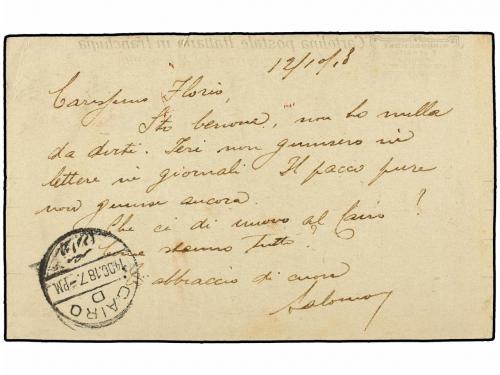 Cartolina postale Italiana in franchigia
12/10/18
Carissimo Florio,
Sto benone, non ho nulla
da dirti. Ieri non giunsero nè
lettere nè giornali Il pacco pure
non giunse ancora.
Che ci di nuovo al Cairo?
Come stanno tutti?
T'abbraccio di cuore
Salomon
CAIRO
D
14 OC. 18. 7- PM